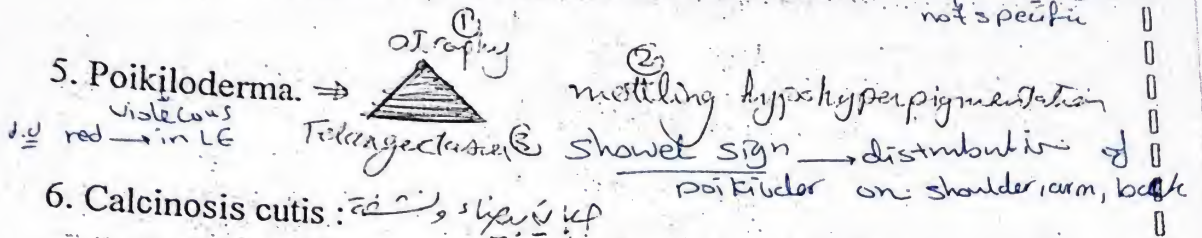 not specific
① atrophy
5. Poikiloderma. ⇒
② mottling hypo hyperpigmentation
violecous
red → in LE
Telangectasia ③
showel sign → distribution of
poikiloder on shoulder, arm, back
6. Calcinosis cutis :